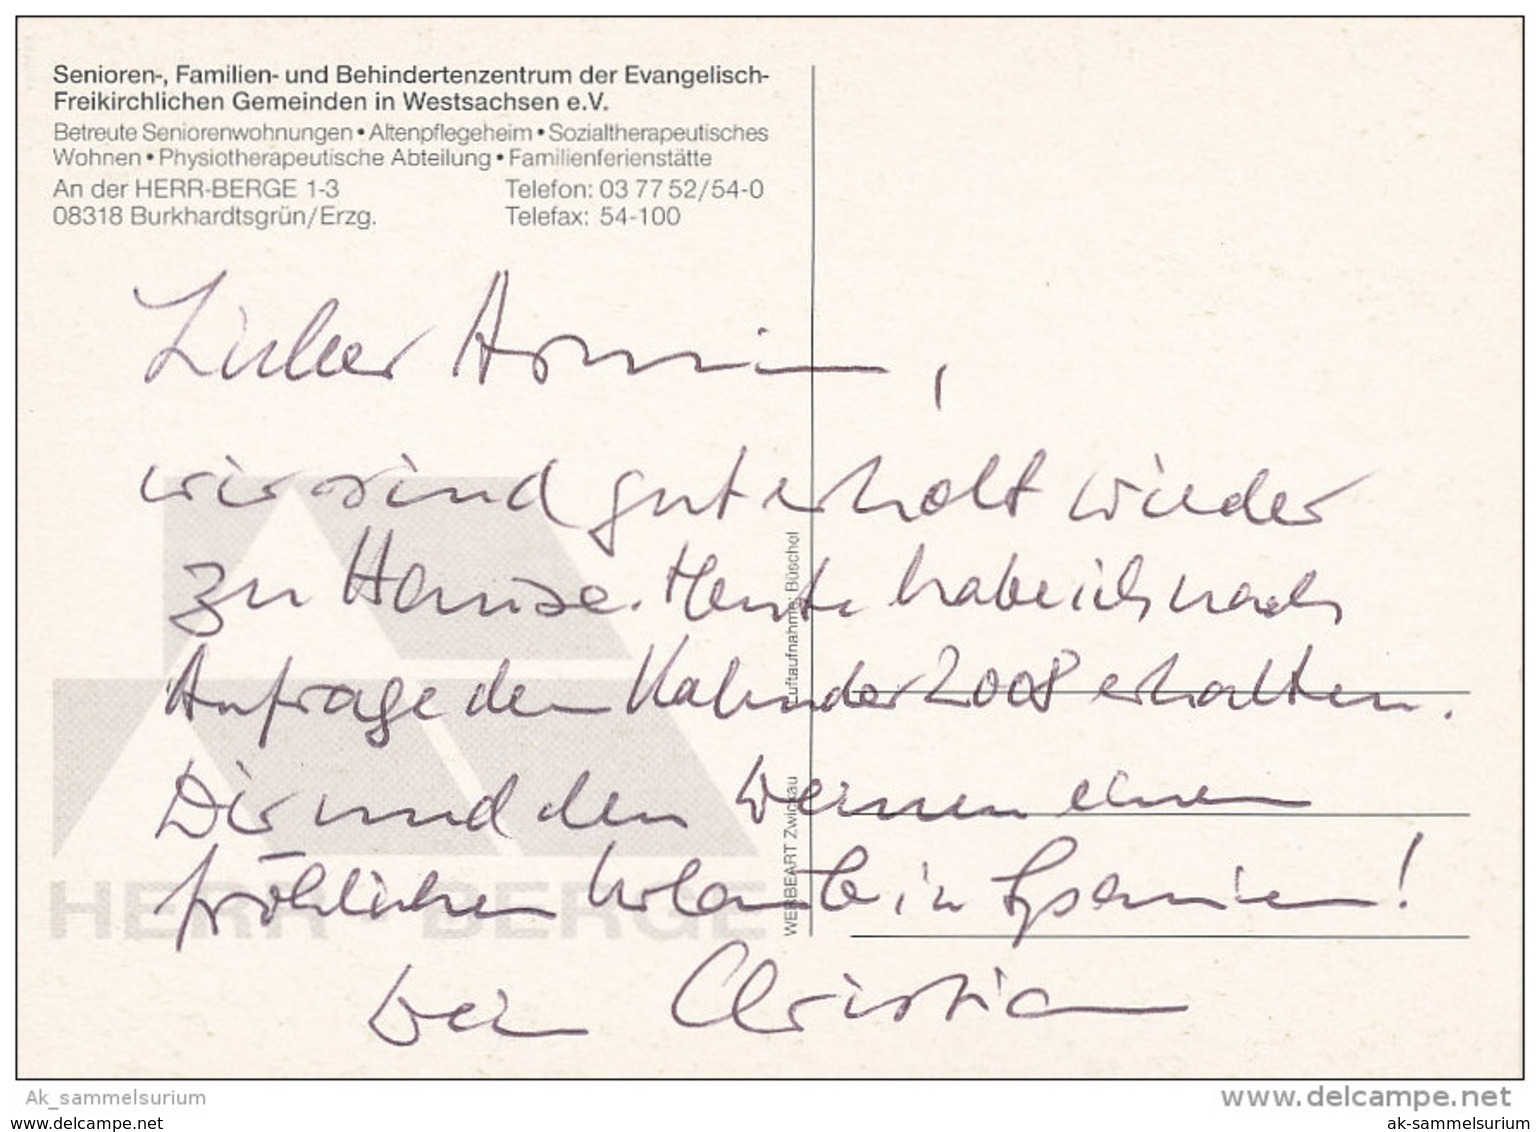 Senioren-, Familien- und Behindertenzentrum der Evangelisch-
Freikirchlichen Gemeinden in Westsachsen e.V.
Betreute Seniorenwohnungen • Altenpflegeheim • Sozialtherapeutisches
Wohnen • Physiotherapeutische Abteilung • Familienferienstätte
An der HERR-BERGE 1-3 Telefon: 03 77 52/54-0
08318 Burkhardtsgrün/Erzg. Telefax: 54-100
Lieber Armin,
wir sind gut erholt wieder
zu Hause. Heute habe ich nach
Anfrage den Kalender 2008 erhalten.
Dir und den Deinen einen
fröhlichen Urlaub in Spanien!
Dein Christian
HERR-BERGE
WERBEART Zwickau Luftaufnahme: Büschel
Ak_sammelsurium
www.delcampe.net
www.delcampe.net
ak-sammelsurium